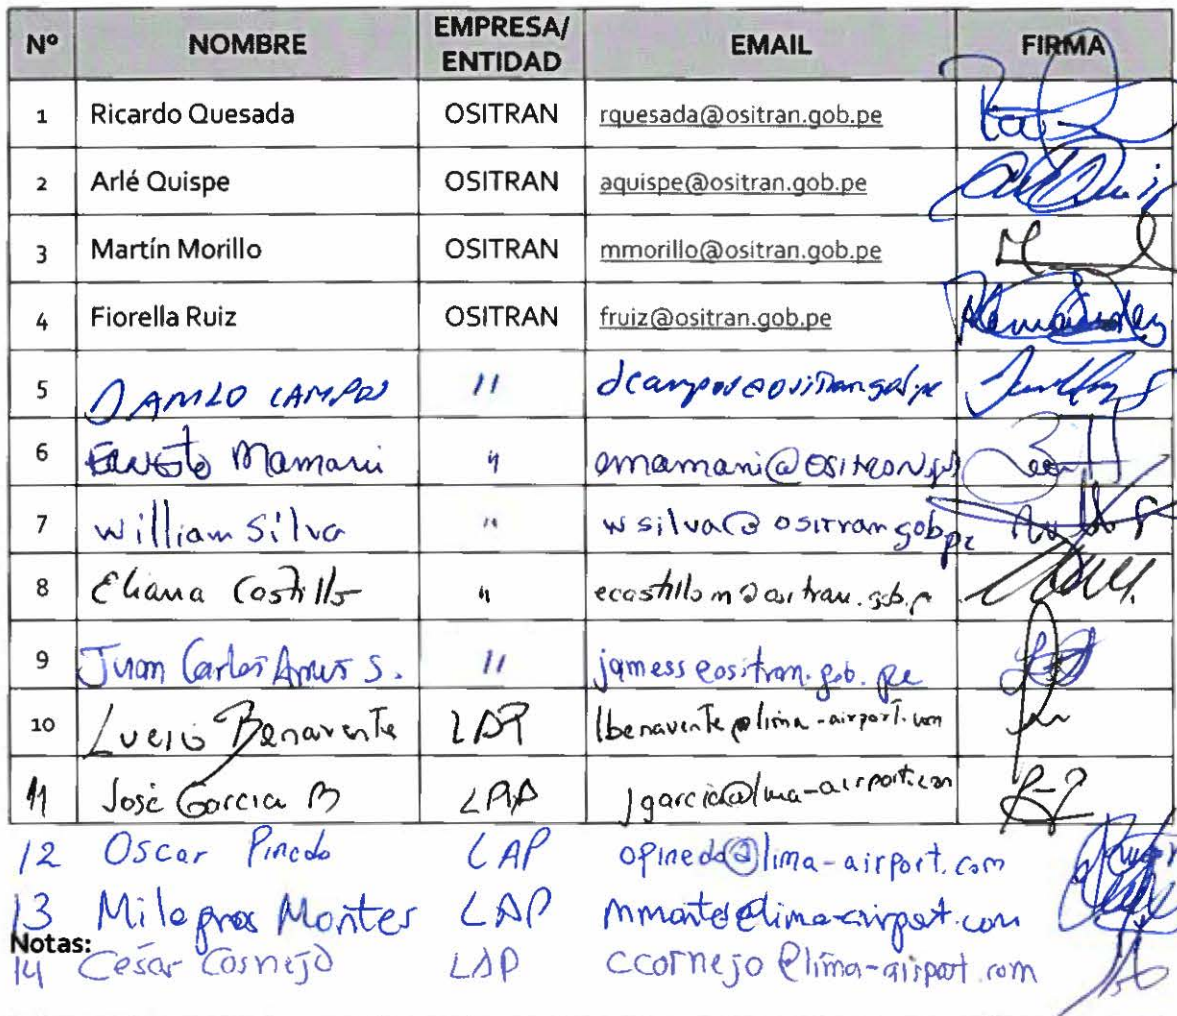 Nº NOMBRE EMPRESA/ ENTIDAD EMAIL FIRMA
1 Ricardo Quesada OSITRAN rquesada@ositran.gob.pe
2 Arlé Quispe OSITRAN aquispe@ositran.gob.pe
3 Martín Morillo OSITRAN mmorillo@ositran.gob.pe
4 Fiorella Ruiz OSITRAN fruiz@ositran.gob.pe
5 DANILO CAMPOS "
6 Ernesto Mamani "
7 William Silva " wsilva@ositran.gob.pe
8 Eliana Castillo "
9 Juan Carlos "
10 Benavente LAP lbenavente@lima-airport.com
11 José García B LAP jgarcia@lima-airport.com
12 Oscar Pinedo LAP opinedo@lima-airport.com
13 Milagros Montes LAP mmontes@lima-airport.com
Notas:
14 César Cornejo LAP ccornejo@lima-airport.com